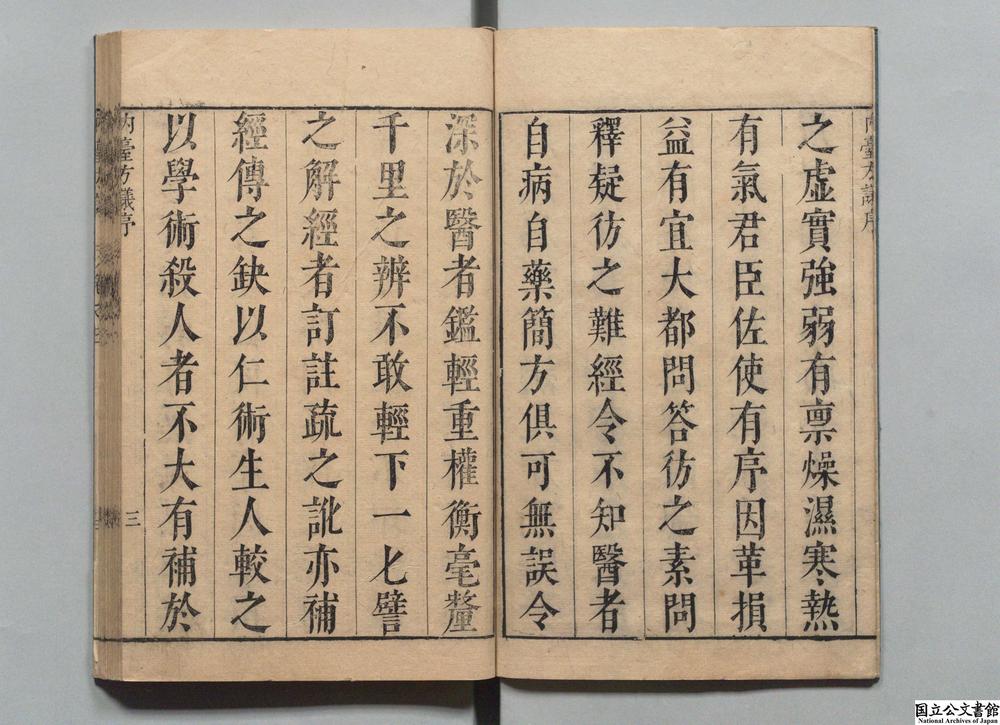 內臺方議序
之虛實強弱有禀燥濕寒熱
有氣君臣佐使有序因革損
益有宜大都問答彷之素問
釋疑彷之難經令不知醫者
自病自藥簡方俱可無誤令
深於醫者鑑輕重權衡毫釐
千里之辨不敢輕下一匕譬
之解經者訂註疏之訛亦補
經傳之缺以仁術生人較之
以學術殺人者不大有補於
內臺方議序
三
国立公文書館
National Archives of Japan